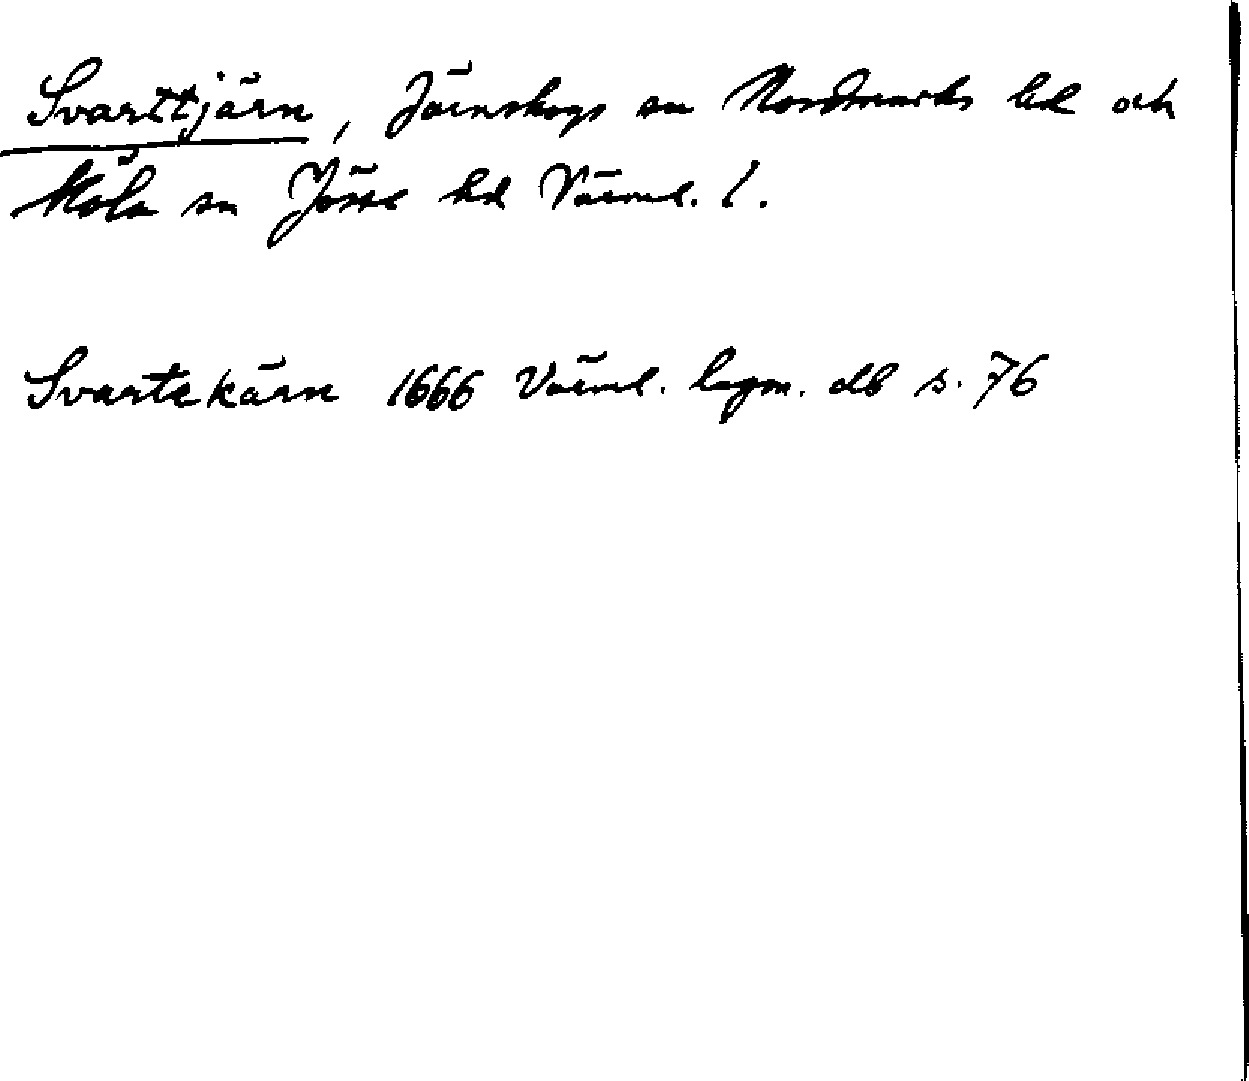 Svarttjärn, Järnskogs sn Nordmarks hd och
Köla sn Jösse hd Värml. l.
Svartekärn 1666 Värml. lagm. db s. 76